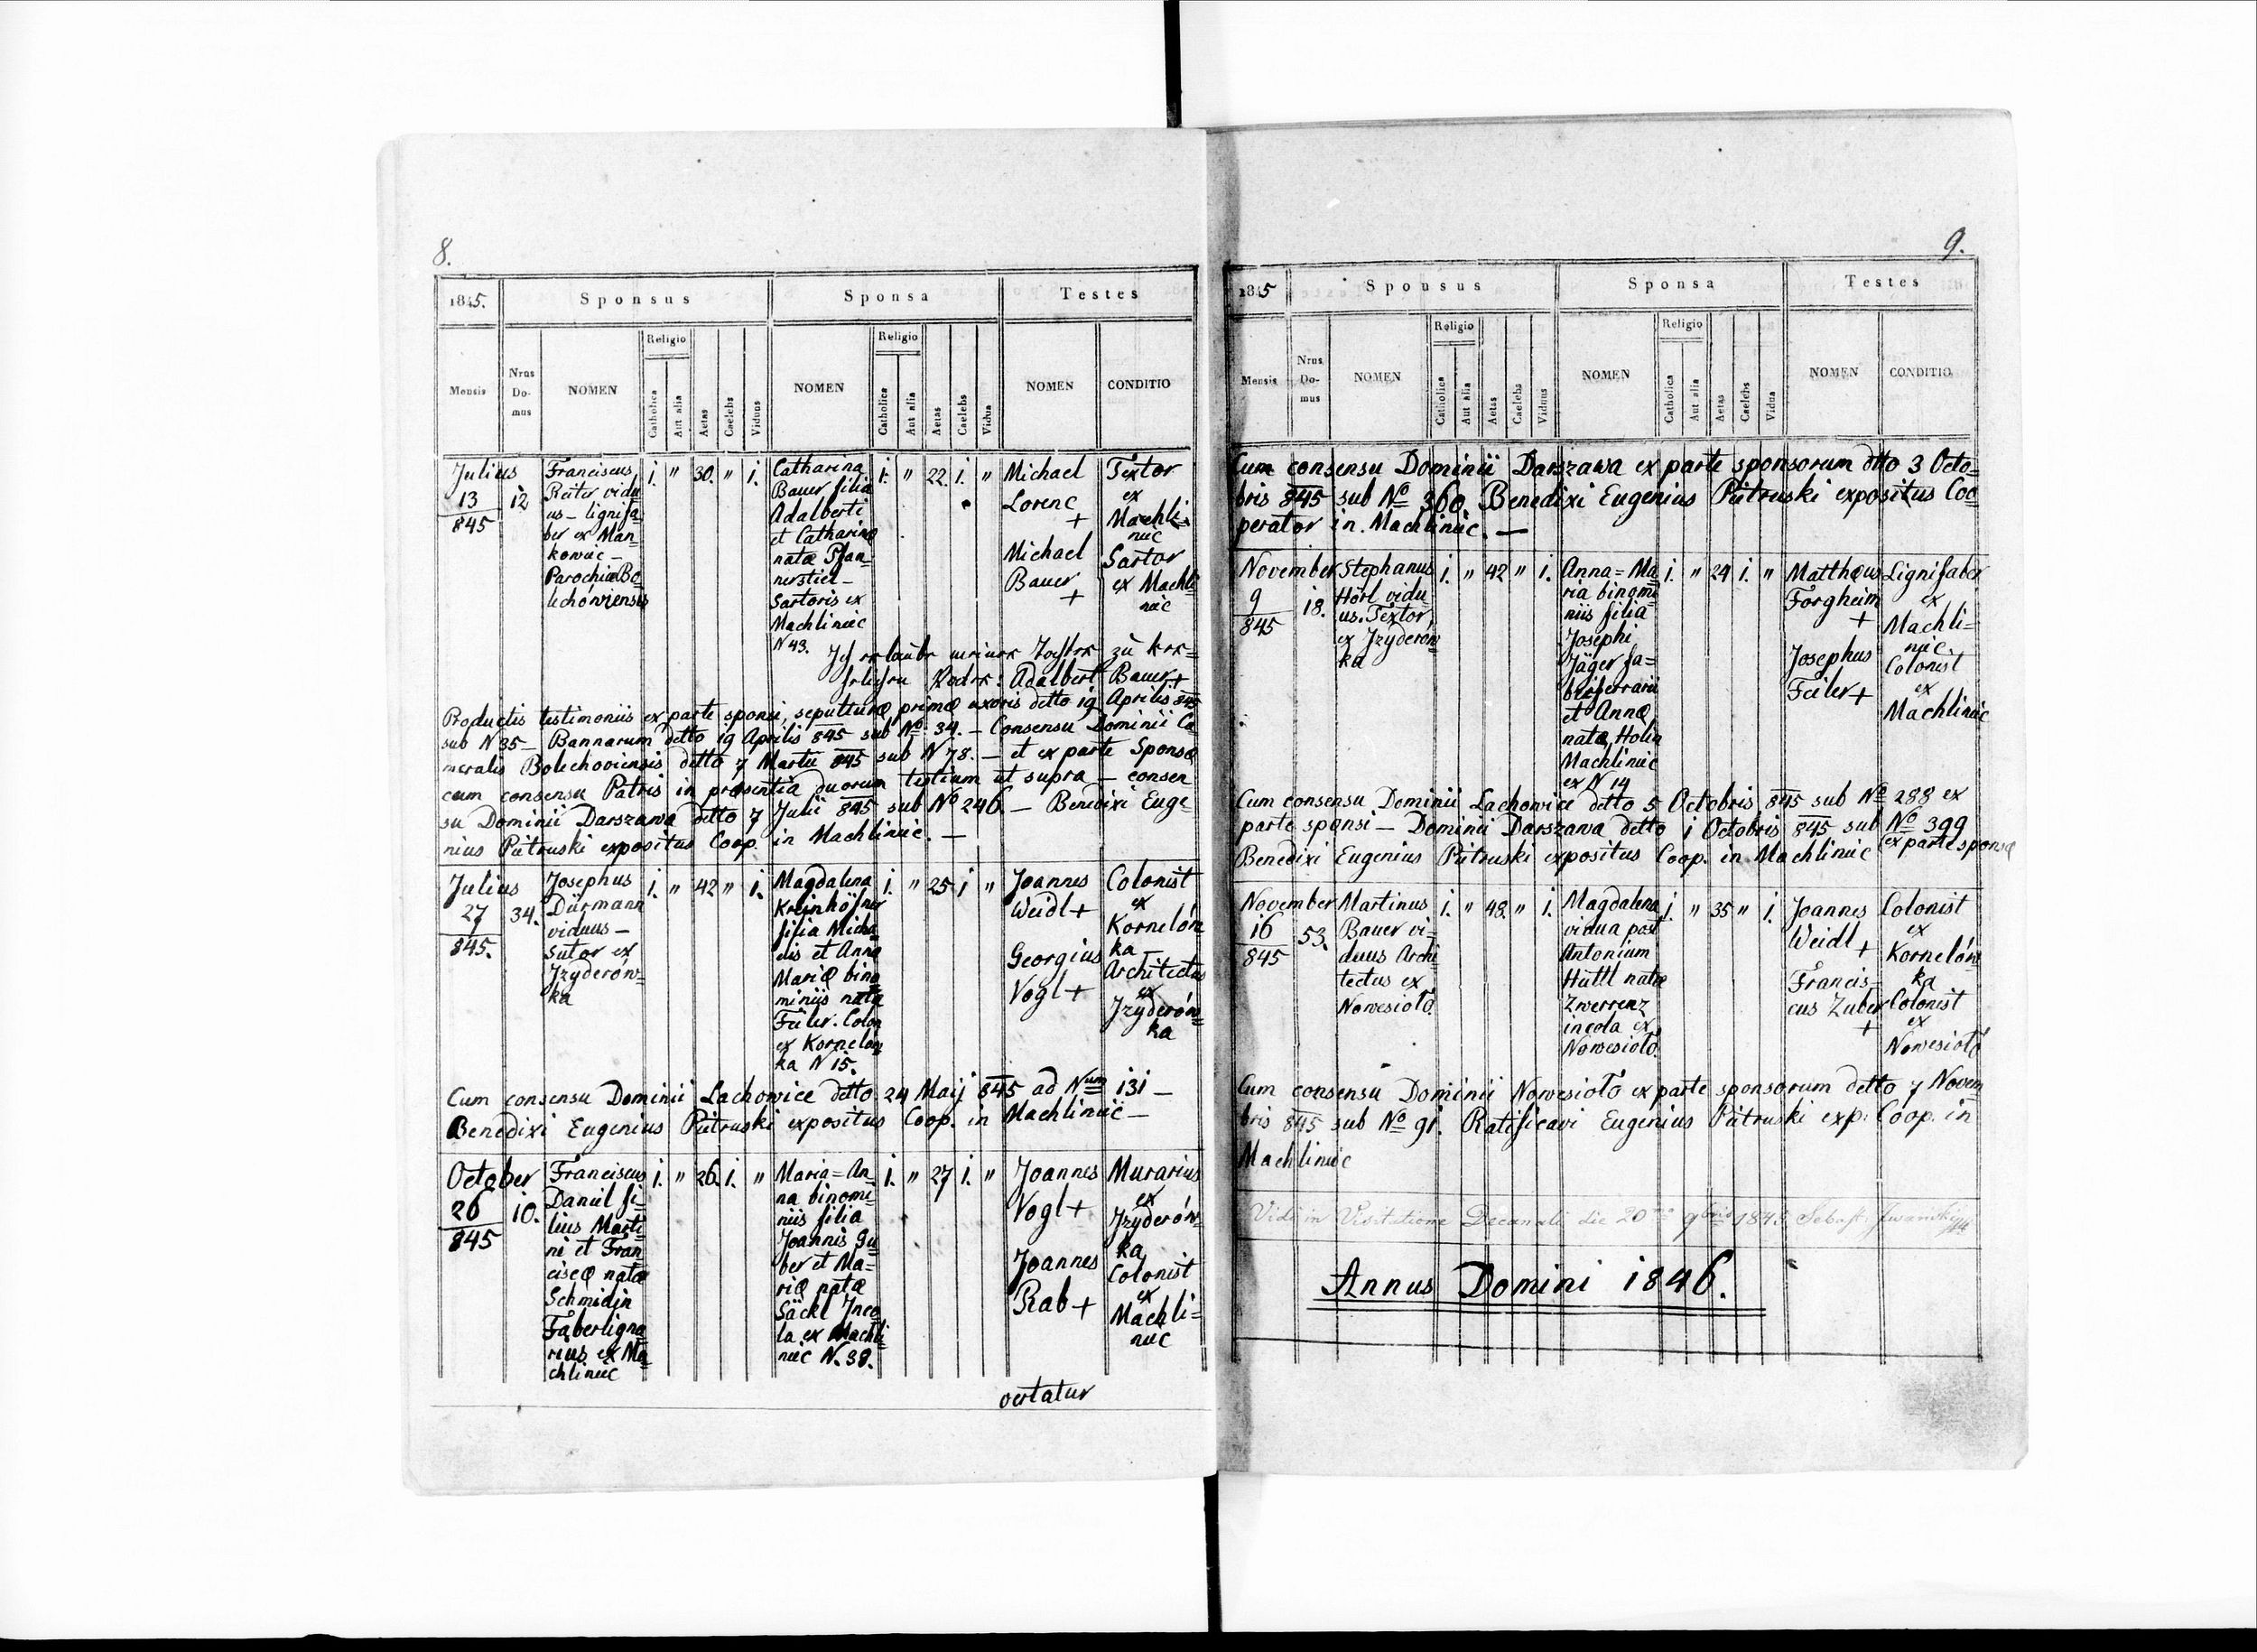 8.
1845.
Sponsus
Sponsa
Testes
Mensis
Nrus Do- mus
NOMEN
Religio
Catholica
Aut alia
Aetas
Caelebs
Viduus
NOMEN
Religio
Catholica
Aut alia
Aetas
Caelebs
Vidua
NOMEN
CONDITIO
Julius
13
845
12
Franciscus
Reiter vidu
us - lignifa=
ber ex Man=
kowiec -
Parochiæ Bo=
lechówiensis
i. " 30. " i.
Catharina
Bauer filia
Adalberti
et Catharinæ
natæ Pfan=
nerstiel -
Sartoris ex
Machliniec
N 43.
i. " 22. i. "
Michael
Lorenc
+
Michael
Bauer
+
Textor
ex
Machli=
niec
Sartor
ex Machli=
niec
Ich erlaube meiner Tochter zu ver=
ehlichen Vader: Adalbert Bauer+
Productis testimoniis ex parte sponsi, sepulturæ primæ uxoris detto 19 Aprilis 845
sub N 35 - Bannarum detto 19 Aprilis 845 sub No 34. - Consensu Dominii Ca
meralis Bolechoviensis detto 7 Martii 845 sub N 78. - et ex parte Sponsæ
cum consensu Patris in præsentia duorum testium ut supra - consen
su Dominii Darszawa detto 7 Julii 845 sub No 246. - Benedixi Euge
nius Pietruski expositus Coop. in Machliniec. -
Julius
27
845.
34.
Josephus
Dürmann
viduus -
Sutor ex
Jzyderów=
ka
i. " 42 " i.
Magdalena
Kreinhöfner
filia Micha=
elis et Anna
Mariæ bino
miniis natæ
Feiler. Colon
ex Kornelów
ka N 15.
i. " 25 i "
Joannes
Weidl+
Georgius
Vogl+
Colonist
ex
Kornelów
ka -
Architectus
ex
Jzyderów=
ka
Cum consensu Dominii Lachowice detto 24 Maij 845 ad Num 131 -
Benedixi Eugenius Pietruski expositus Coop. in Machliniec -
October
26
845
10.
Franciscus
Daniel fi=
lius Marti=
ni et Fran
ciscæ natæ
Schmidin
Faberligna
rius ex Ma=
chliniec
i. " 26. i. "
Maria=An=
na binomi=
niis filia
Joannis Gu=
ber et Ma=
riæ natæ
Säckl Inco=
la ex Machli=
niec N. 38.
i. " 27 i. "
Joannes
Vogl+
Joannes
Rab+
Murarius
ex
Jzyderów=
ka
Colonist
ex
Machli=
niec
vertatur
9.
1845
Sponsus
Sponsa
Testes
Mensis
Nrus Do- mus
NOMEN
Religio
Catholica
Aut alia
Aetas
Caelebs
Viduus
NOMEN
Religio
Catholica
Aut alia
Aetas
Caelebs
Vidua
NOMEN
CONDITIO
Cum consensu Dominii Darszawa ex parte sponsorum dtto 3 Octo=
bris 845 sub No 360. Benedixi Eugenius Pietruski expositus Coo
perator in Machliniec. -
November
9
845
18.
Stephanus
Hörl vidu=
us. Textor
ex Jzyderów=
ka
i. " 42 " i.
Anna=Ma=
ria binomi
niis filia
Josephi
Jäger fa=
bri ferrarii
et Annæ
natæ Holin
Machliniec
ex N 14
i. " 24 i. "
Matthæus
Forgheim
+
Josephus
Feiler+
Lignifaber
ex
Machli=
niec.
Colonist
ex
Machliniec
Cum consensu Dominii Lachowice detto 5 Octobris 845 sub No 288 ex
parte sponsi - Dominii Darszawa detto 1 Octobris 845 sub No 399
Benedixi Eugenius Pietruski expositus Coop. in Machliniec ex parte sponsæ
November
16
845
53.
Martinus
Bauer vi=
duus Archi=
tectus ex
Nowesioło.
i. " 48. " i.
Magdalena
vidua post
Antonium
Hüttl natæ
Zwerrenz
incola ex
Nowesioło.
i. " 35 " i.
Joannes
Weidl +
Francis=
cus Zuber
+
Colonist
ex
Kornelów=
ka
Colonist
ex
Nowesioło
Cum consensu Dominii Nowesioło ex parte sponsorum detto 7 Novem
bris 845 sub No 91. Ratificavi Eugenius Pietruski exp: Coop. in
Machliniec
Vidi in Visitatione Decanali die 20
Annus Domini 1846.